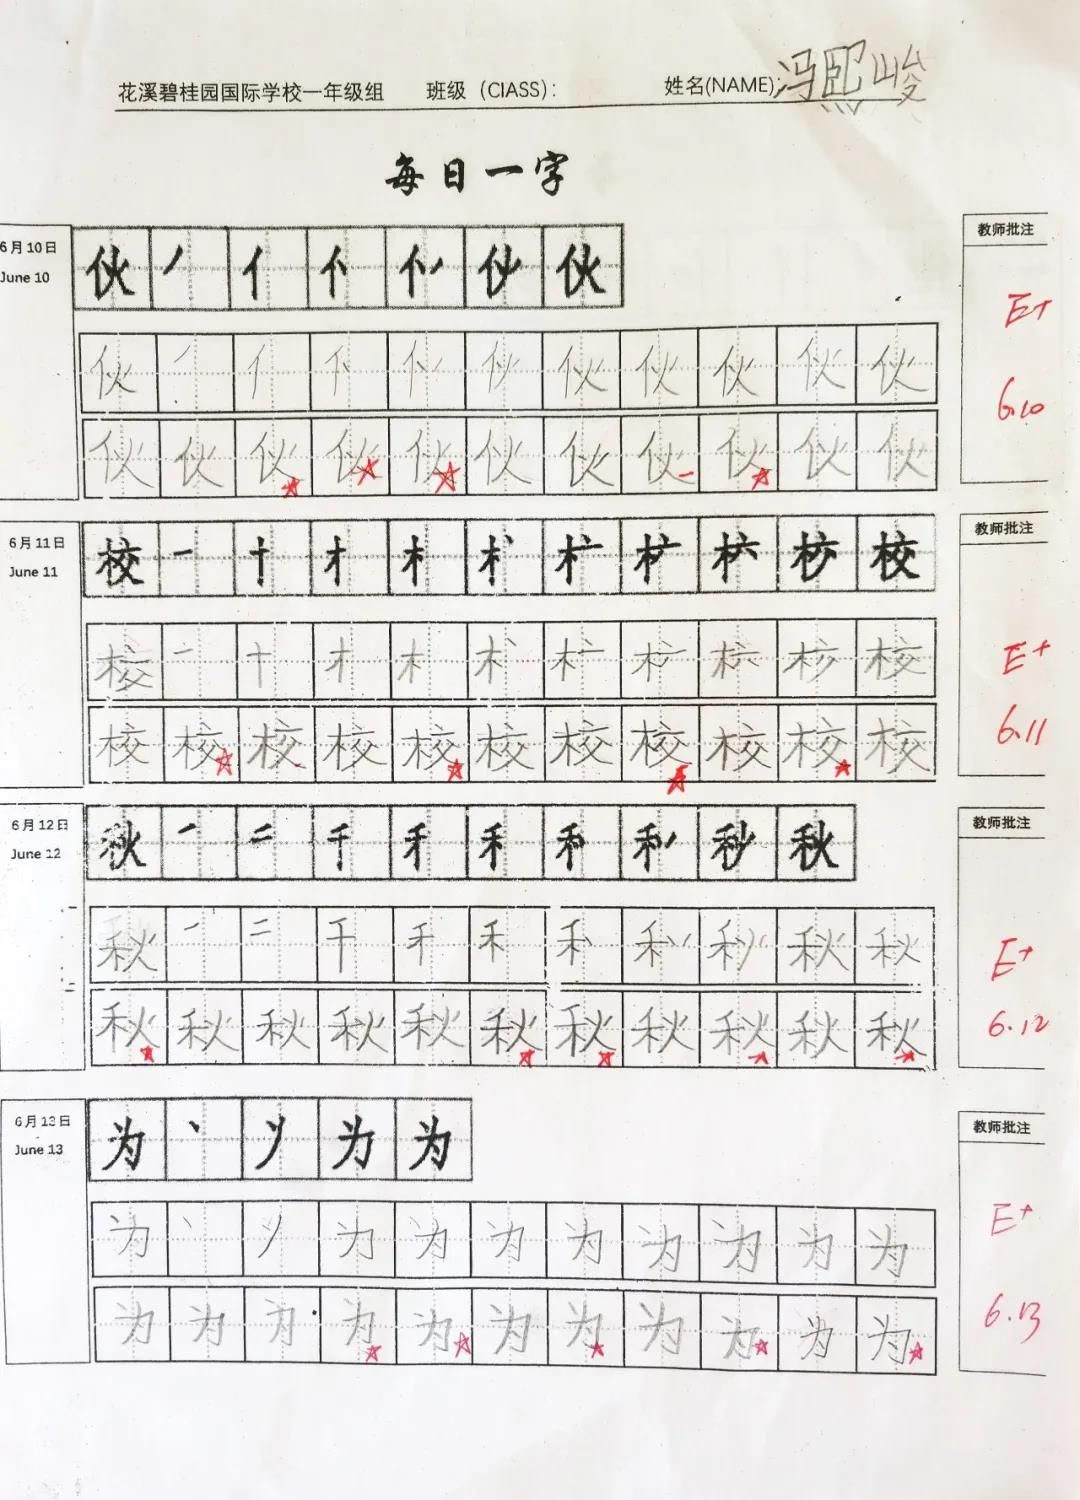 花溪碧桂园国际学校一年级组 班级（ClASS）： 姓名(NAME):冯熙峻
每日一字
6月10日
June 10
伙 丿 亻 伙 伙
伙 丿 亻 伙 伙 伙 伙 伙
伙 伙 伙 伙 伙 伙 伙 伙 伙 伙 伙
教师批注
E+
6.10
6月11日
June 11
校 一 十 木 校
校 一 十 木 校
校 校 校 校 校 校 校 校 校 校 校
教师批注
E+
6.11
6月12日
June 12
秋 一 二 千 禾 秒 秋
秋 一 二 千 禾 秋 秋
秋 秋 秋 秋 秋 秋 秋 秋 秋 秋 秋
教师批注
E+
6.12
6月13日
June 13
为 丶 丷 为 为
为 丶 丷 为 为 为 为 为 为 为
为 为 为 为 为 为 为 为 为 为 为
教师批注
E+
6.13